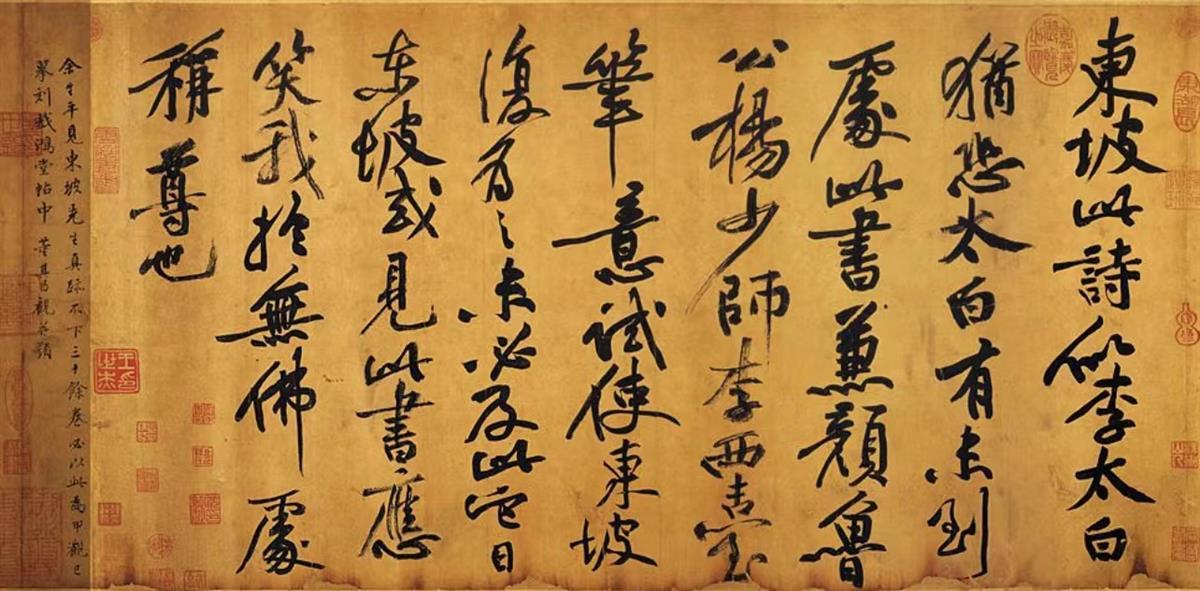 嘉慶御覽之寶
東坡此詩似李太白
猶恐太白有未到
處此書兼顏魯
公楊少師李西臺
筆意試使東坡
復為之未必及此它日
東坡或見此書應
笑我於無佛處
稱尊也
余生平見東坡先生真跡不下三十餘卷必以此為甲觀已
摹刻戲鴻堂帖中 董其昌觀並題